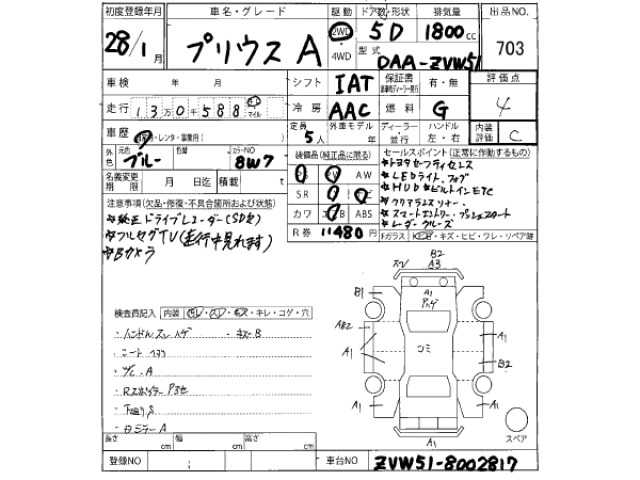 初度登録年月 車名・グレード 駆動 ドア数・形状 排気量 出品NO.
28/1月 プリウス A 2WD 5D 1800cc 703
4WD 型式 DAA-ZVW51
車検 年 月 シフト IAT 保証書 有・無 評価点
走行 13万0千588 マイル 冷房 AAC 燃料 G 4
車歴 自家用・レンタ・事業用( ) 定員 5人 外車モデル年 ディーラー 並行 ハンドル 左・右 内装評価 C
外色 元色 ブルー 色替 カラーNO 8W7 装備品(純正品に限る) セールスポイント(正常に作動するもの)
名義変更期限 月 日迄 積載 t AW
★トヨタセーフティセンス
★LEDライト、フォグ
SR
★HUD★ビルトインETC
注意事項(欠品・修復・不具合箇所および状態) カワ ABS
★クリアランスソナー
★スマートエントリー、プッシュスタート
★純正ドライブレコーダー(SD含) R券 11480円 ★レーダークルーズ
★フルセグTV(走行中見れます) Fガラス ・キズ・ヒビ・ワレ・リペア跡
★Bカメラ
B2
A3
B1 A1
検査員記入 内装 ・キレ・コゲ・穴
・ハンドルスレ ハゲ ・キズB
AB2 A1
A1 コミ B2
・シート
・W/C. A
A1 A1
・カミラーA
A1 スペア
長さ cm 幅 cm 高さ cm
登録NO 車台NO ZVW51-8002817